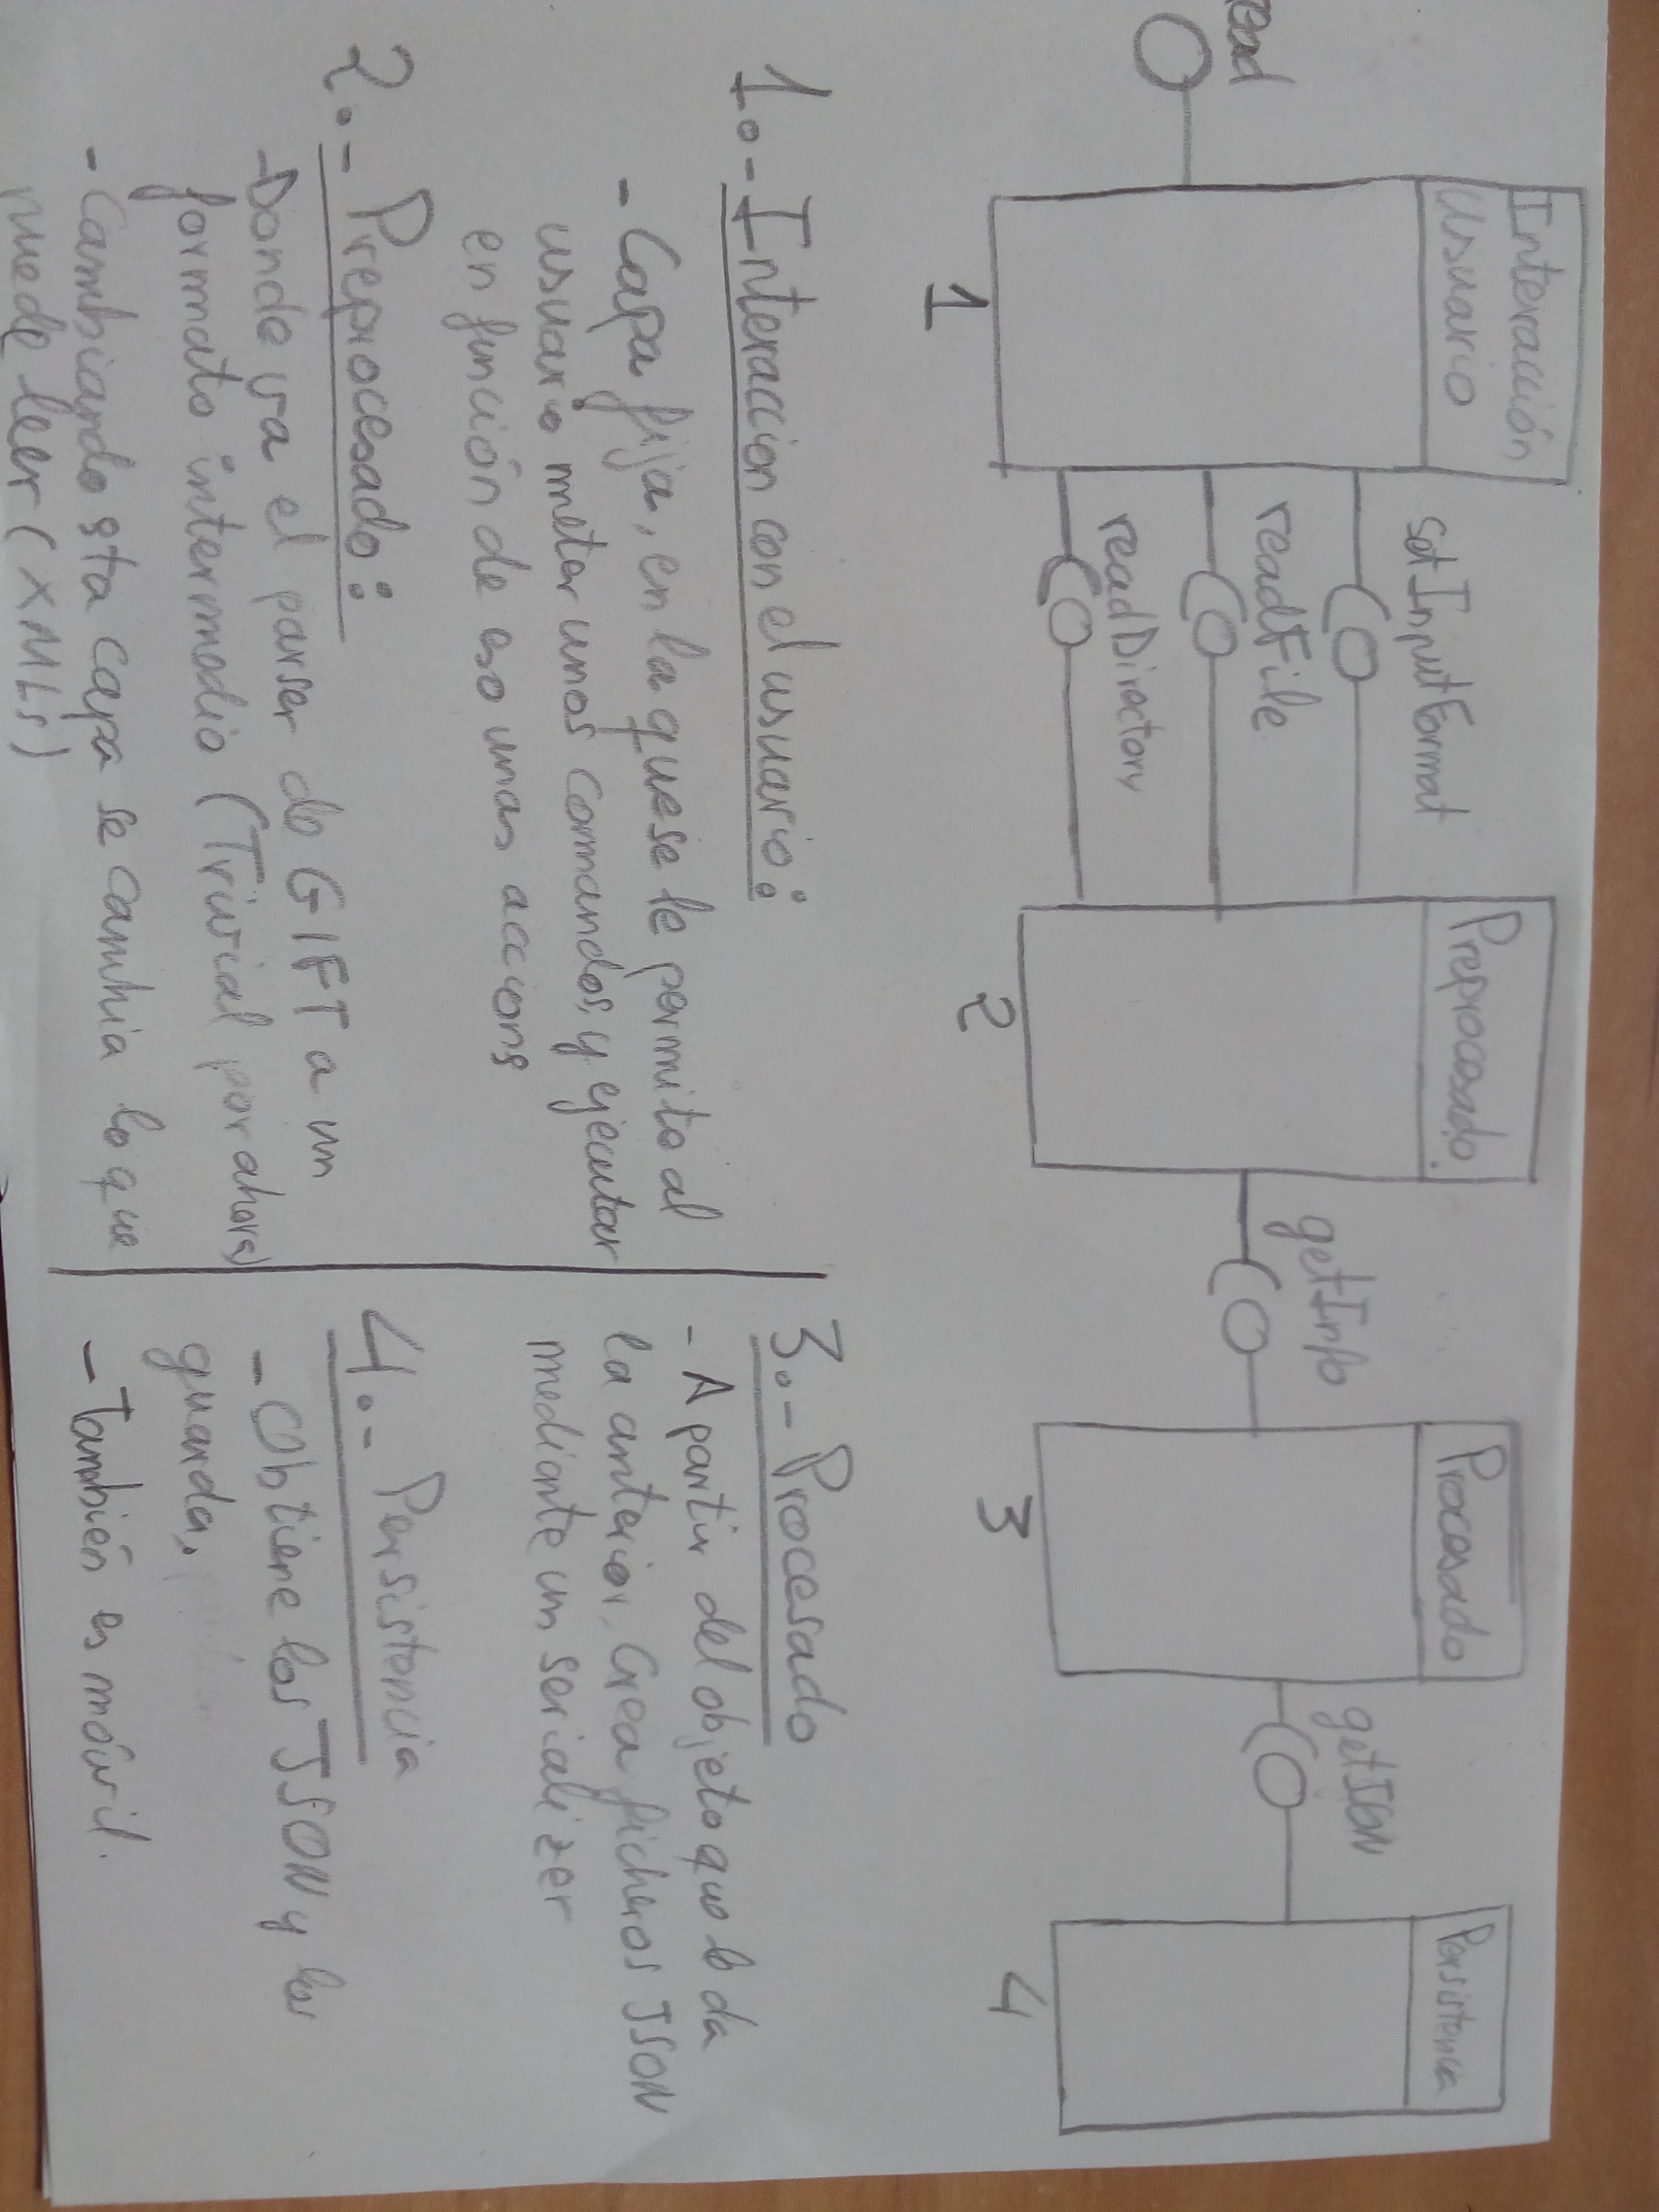 read
Interacción
Usuario
setInputFormat
readFile
readDirectory
1
Preprocesado
2
getInfo
Procesado
3
getJSON
Persistencia
4
1.- Interaccion con el usuario:
- Capa fija, en la que se le permite al
usuario meter unos comandos, y ejecutar
en función de eso unas accions
2.- Preprocesado:
- Donde va el parser de GIFT a un
formato intermedio (Trivial por ahora)
- Cambiando sta capa se cambia lo que
puede leer (XMLs)
3.- Procesado
- A partir del objeto que lo da
la anterior, Crea ficheros JSON
mediante un serializer
4.- Persistencia
- Obtiene los JSON y los
guarda.
- También es móvil.